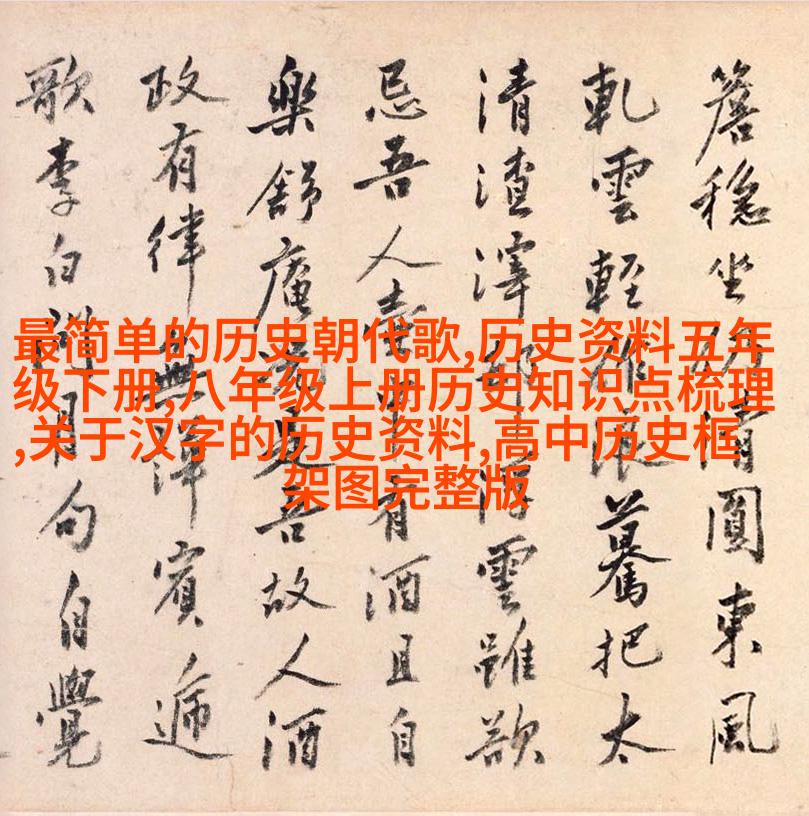 簷穩坐清圓東風
軋雲輕驀把太
清渣滓雲雖欲
忌吾人有酒且自
樂舒庵吾故人酒
政有律無賓遞
歌李白問月句自覺
最简单的历史朝代歌,历史资料五年
级下册,八年级上册历史知识点梳理
,关于汉字的历史资料,高中历史框
架图完整版